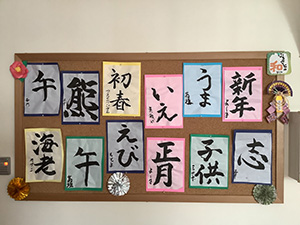 新年
うま
いえ
初春
熊
午
志
子供
正月
えび
午
海老
和